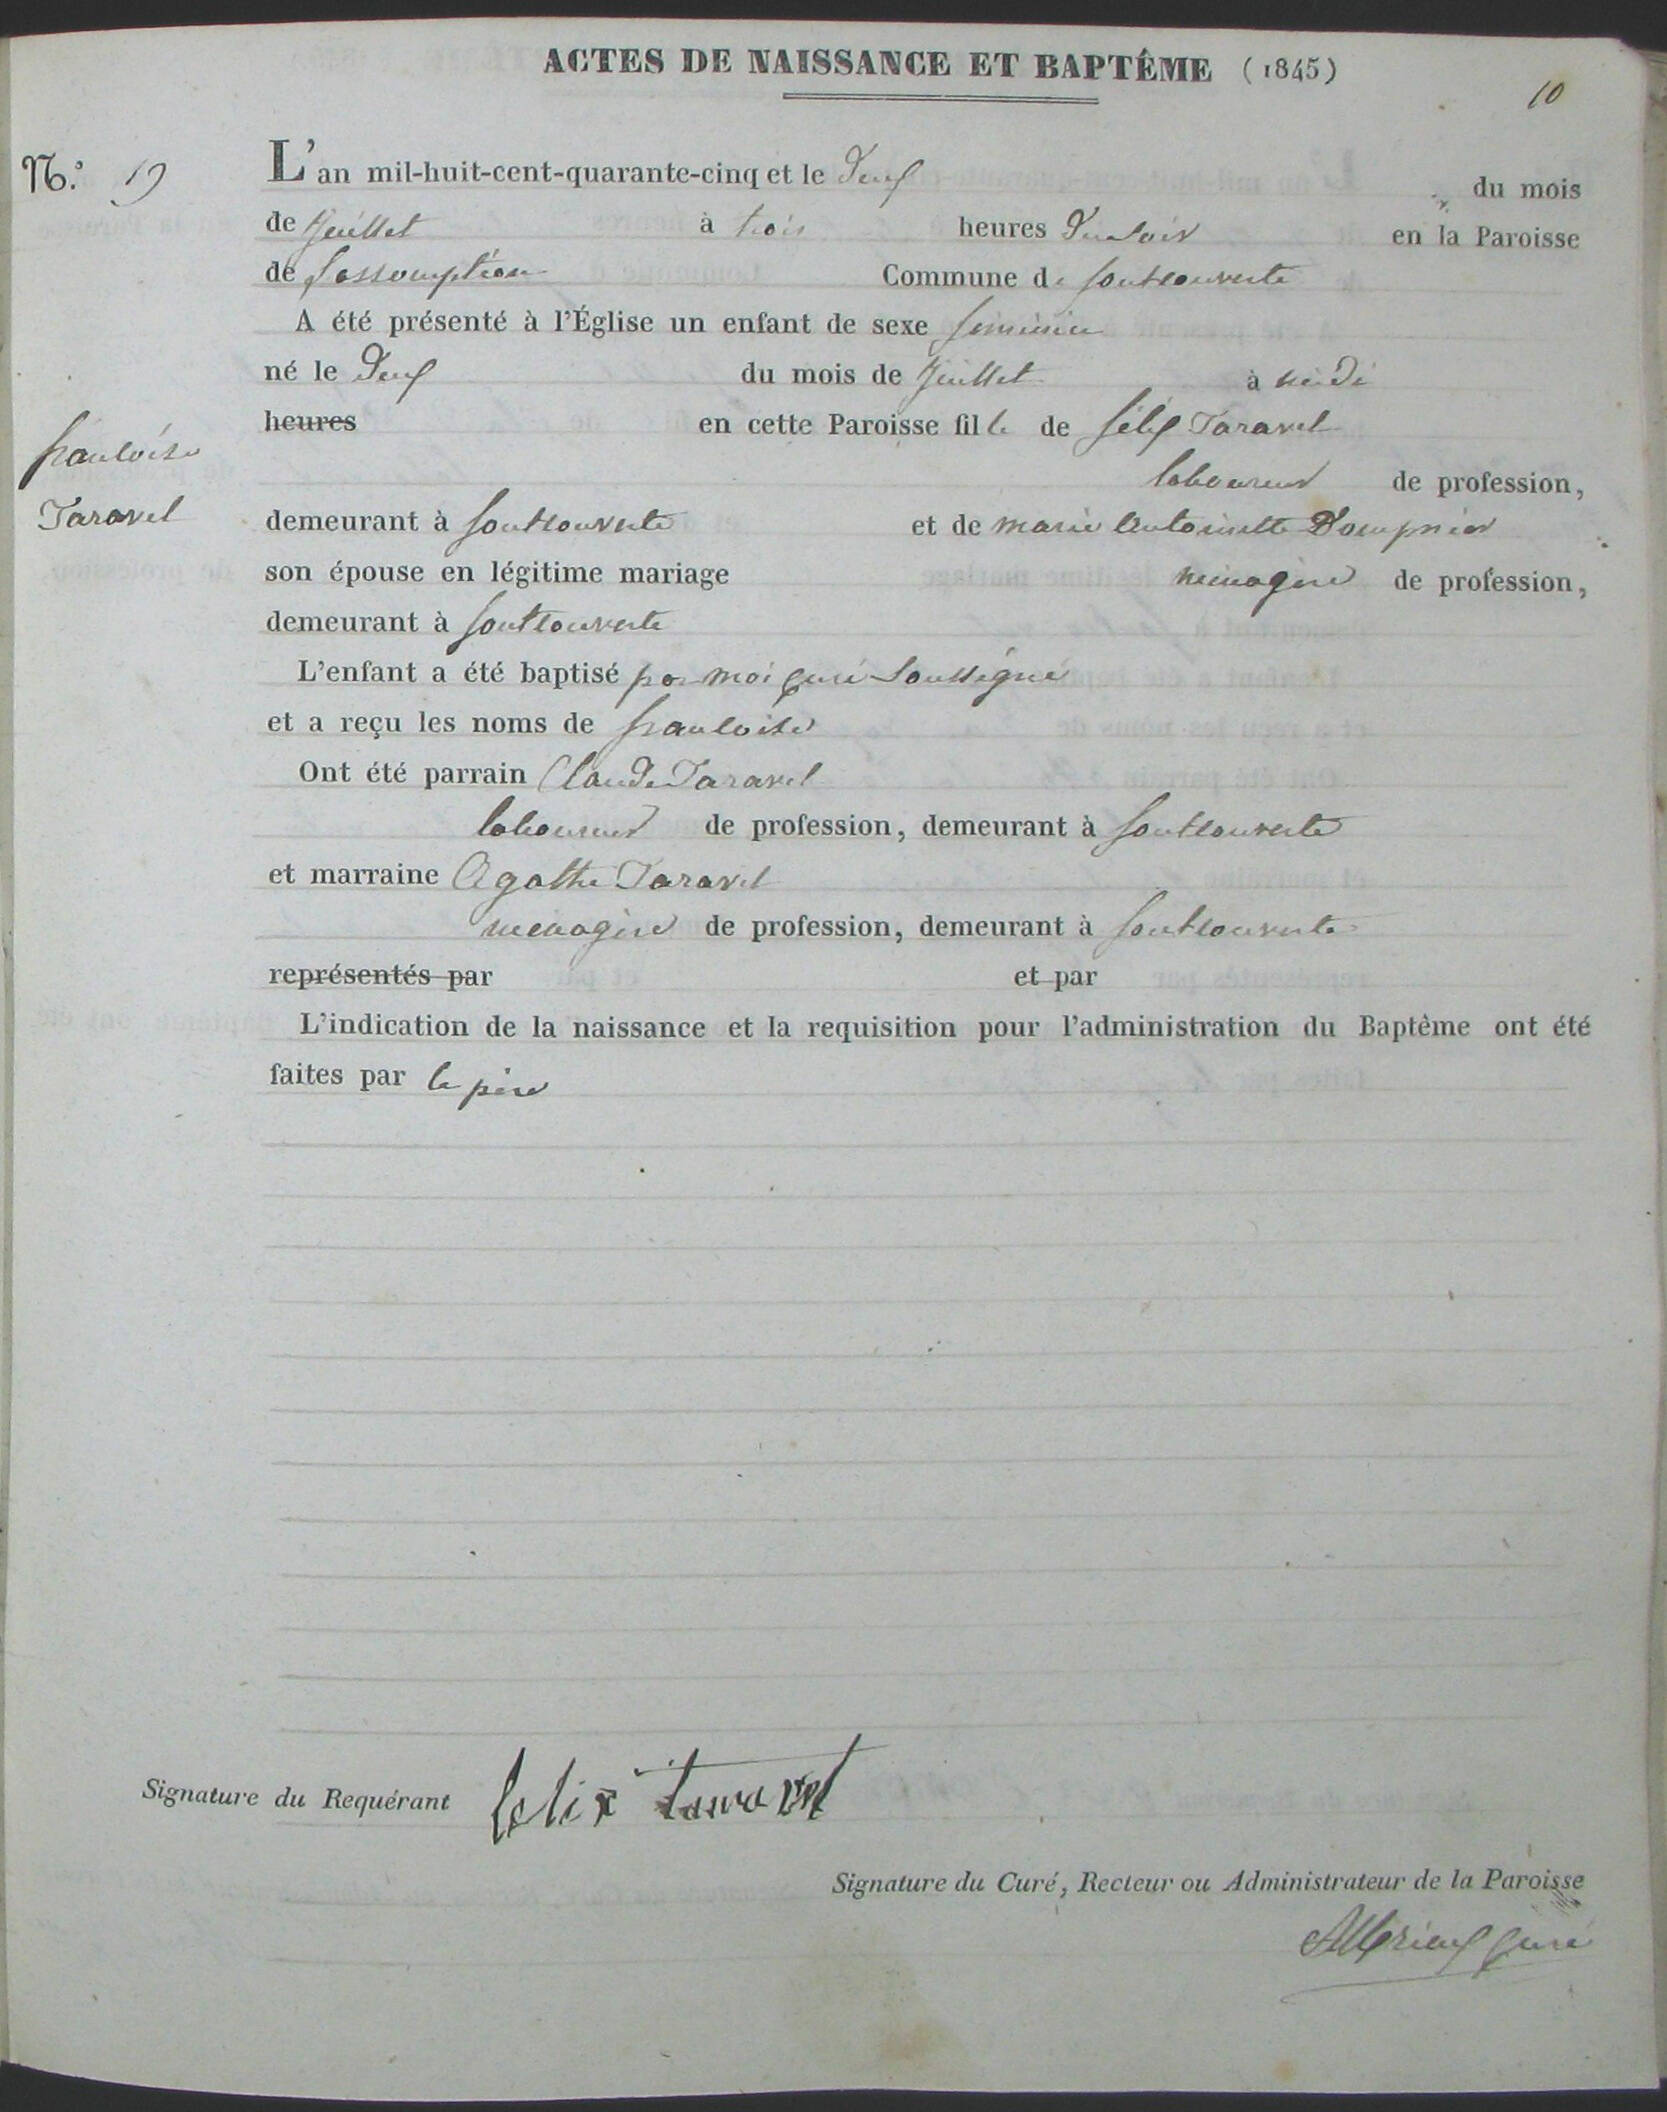 ACTES DE NAISSANCE ET BAPTÊME (1845)
10
N.º 19
L'an mil-huit-cent-quarante-cinq et le Deux du mois
de Juillet à trois heures Du soir en la Paroisse
de Lassomption Commune de fontcouverte
A été présenté à l'Église un enfant de sexe feminin
né le Deux du mois de Juillet à midi
heures en cette Paroisse fille de félix Taravel
laboureur de profession,
françoise
Taravel
demeurant à fontcouverte et de marie antoinette Dompnier
son épouse en légitime mariage menagere de profession,
demeurant à fontcouverte
L'enfant a été baptisé par moi curé soussigné
et a reçu les noms de françoise
Ont été parrain Claude Taravel
laboureur de profession, demeurant à fontcouverte
et marraine Agathe Taravel
menagère de profession, demeurant à fontcouverte
représentés par et par
L'indication de la naissance et la requisition pour l'administration du Baptême ont été
faites par le père
Signature du Requérant felix taravel
Signature du Curé, Recteur ou Administrateur de la Paroisse
curé